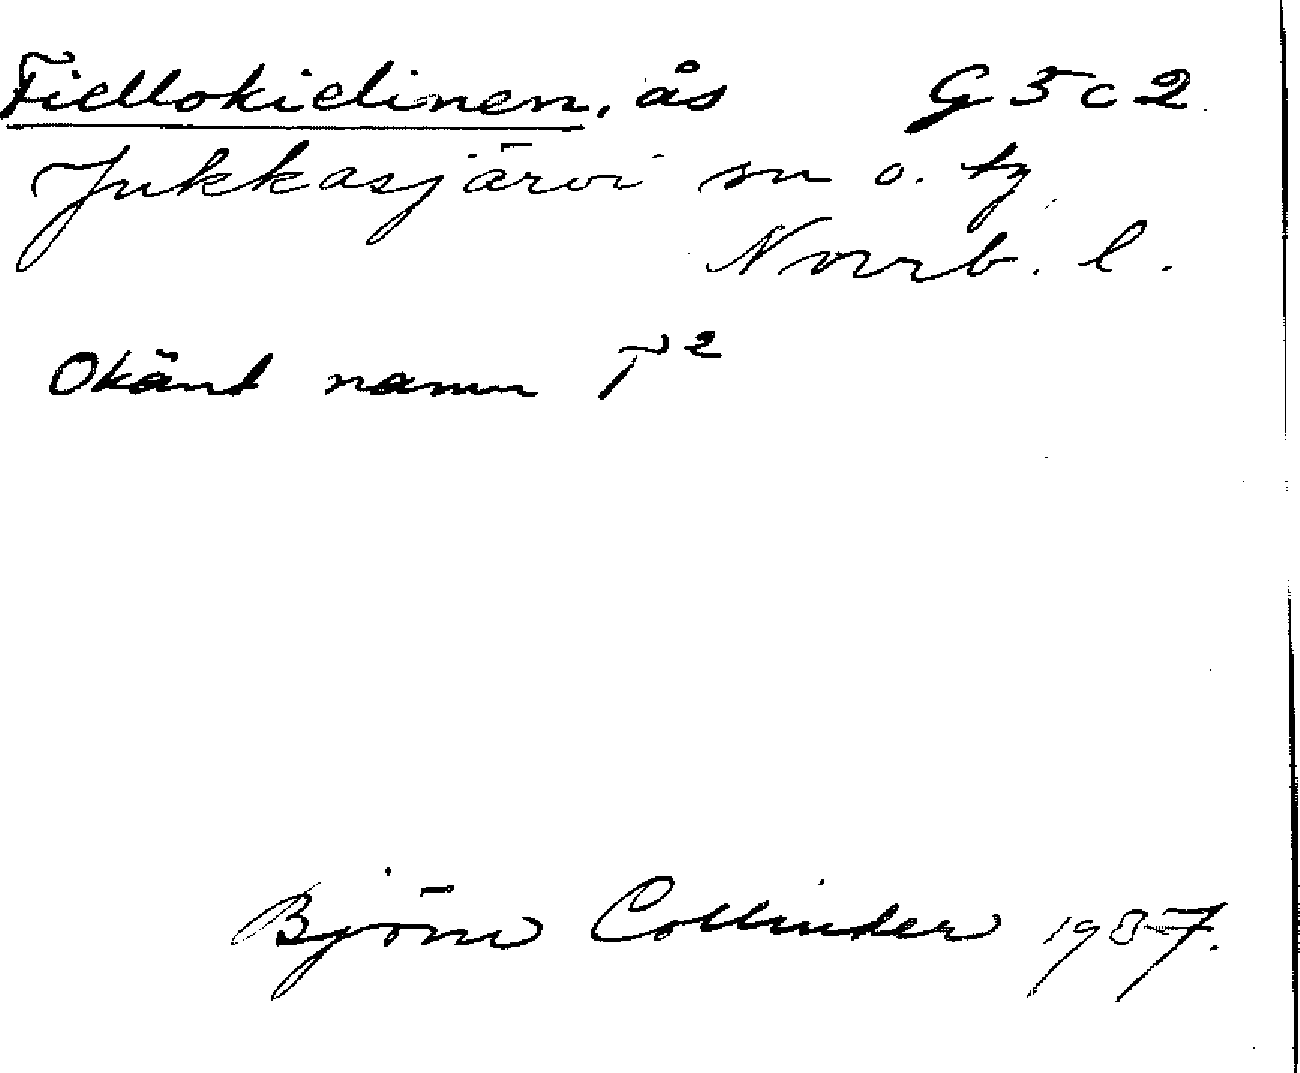 Fiellokielinen, ås G 5 c 2
Jukkasjärvi sn o. tg
Norrb. l.
Okänt namn T²
Björn Collinder 1937.